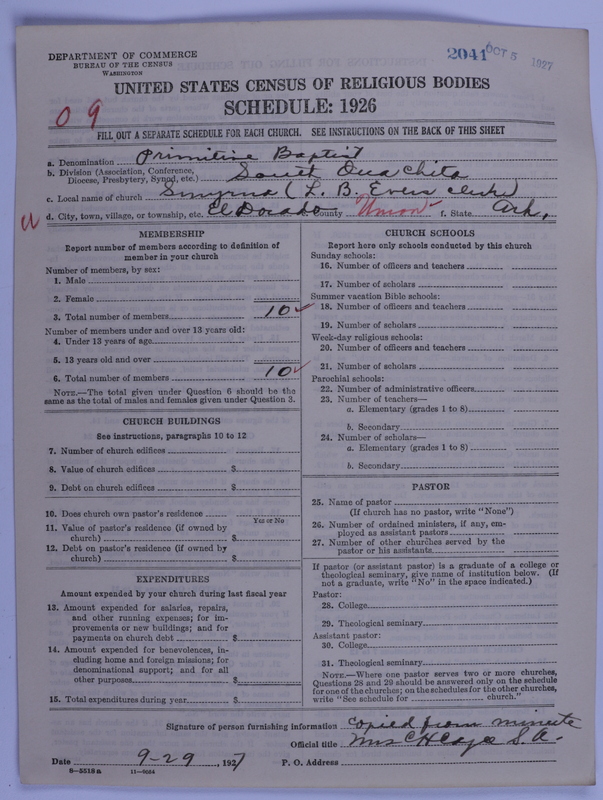 DEPARTMENT OF COMMERCE
BUREAU OF THE CENSUS
WASHINGTON
2041 OCT 5 1927
UNITED STATES CENSUS OF RELIGIOUS BODIES
SCHEDULE: 1926
09
FILL OUT A SEPARATE SCHEDULE FOR EACH CHURCH. SEE INSTRUCTIONS ON THE BACK OF THIS SHEET
a. Denomination Primitive Baptist
b. Division (Association, Conference, Diocese, Presbytery, Synod, etc.) South Ouachita
c. Local name of church Smyrna (L. B. Evers clerk)
d. City, town, village, or township, etc. El Dorado County Union f. State Ark.
MEMBERSHIP
Report number of members according to definition of
member in your church
Number of members, by sex:
1. Male
2. Female
3. Total number of members 10 ✓
Number of members under and over 13 years old:
4. Under 13 years of age
5. 13 years old and over
6. Total number of members 10 ✓
NOTE.—The total given under Question 6 should be the
same as the total of males and females given under Question 3.
CHURCH BUILDINGS
See instructions, paragraphs 10 to 12
7. Number of church edifices
8. Value of church edifices $
9. Debt on church edifices $
10. Does church own pastor's residence
Yes or No
11. Value of pastor's residence (if owned by
church) $
12. Debt on pastor's residence (if owned by
church) $
EXPENDITURES
Amount expended by your church during last fiscal year
13. Amount expended for salaries, repairs,
and other running expenses; for im-
provements or new buildings; and for
payments on church debt $
14. Amount expended for benevolences, in-
cluding home and foreign missions; for
denominational support; and for all
other purposes $
15. Total expenditures during year $
CHURCH SCHOOLS
Report here only schools conducted by this church
Sunday schools:
16. Number of officers and teachers
17. Number of scholars
Summer vacation Bible schools:
18. Number of officers and teachers
19. Number of scholars
Week-day religious schools:
20. Number of officers and teachers
21. Number of scholars
Parochial schools:
22. Number of administrative officers
23. Number of teachers—
a. Elementary (grades 1 to 8)
b. Secondary
24. Number of scholars—
a. Elementary (grades 1 to 8)
b. Secondary
PASTOR
25. Name of pastor
(If church has no pastor, write "None")
26. Number of ordained ministers, if any, em-
ployed as assistant pastors
27. Number of other churches served by the
pastor or his assistants
If pastor (or assistant pastor) is a graduate of a college or
theological seminary, give name of institution below. (If
not a graduate, write "No" in the space indicated.)
Pastor:
28. College
29. Theological seminary
Assistant pastor:
30. College
31. Theological seminary
NOTE.—Where one pastor serves two or more churches,
Questions 28 and 29 should be answered only on the schedule
for one of the churches; on the schedules for the other churches,
write "See schedule for church."
Signature of person furnishing information Copied from minute
Official title Mrs C H Cayce S. A.
Date 9-29, 1927 P. O. Address
8-5518a 11-9064